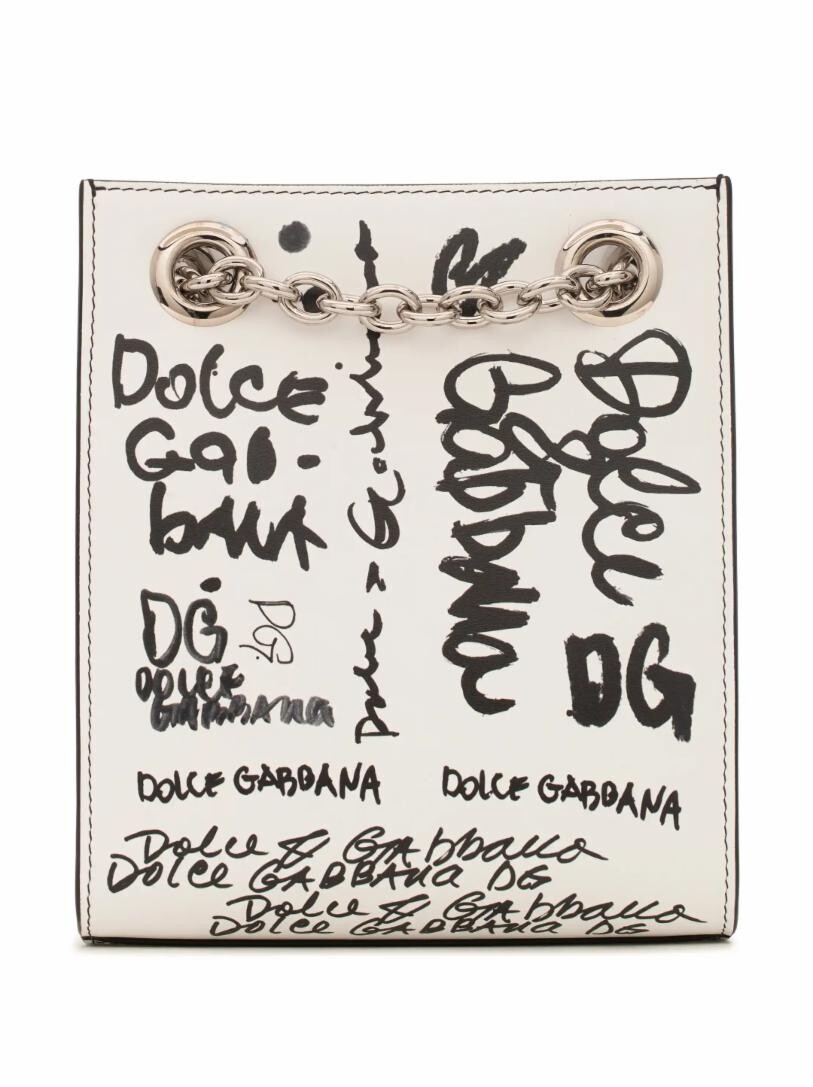 DOLCE
GaB.
baNA
DG
DG.
DOLCE
GABBANA
Dolce & Gabbana
Gabbana
Dolce
DG
DOLCE GABBANA
DOLCE GABBANA
Dolce & Gabbana
Dolce GABBANA DG
Dolce & Gabbana
Dolce GABBANA DG